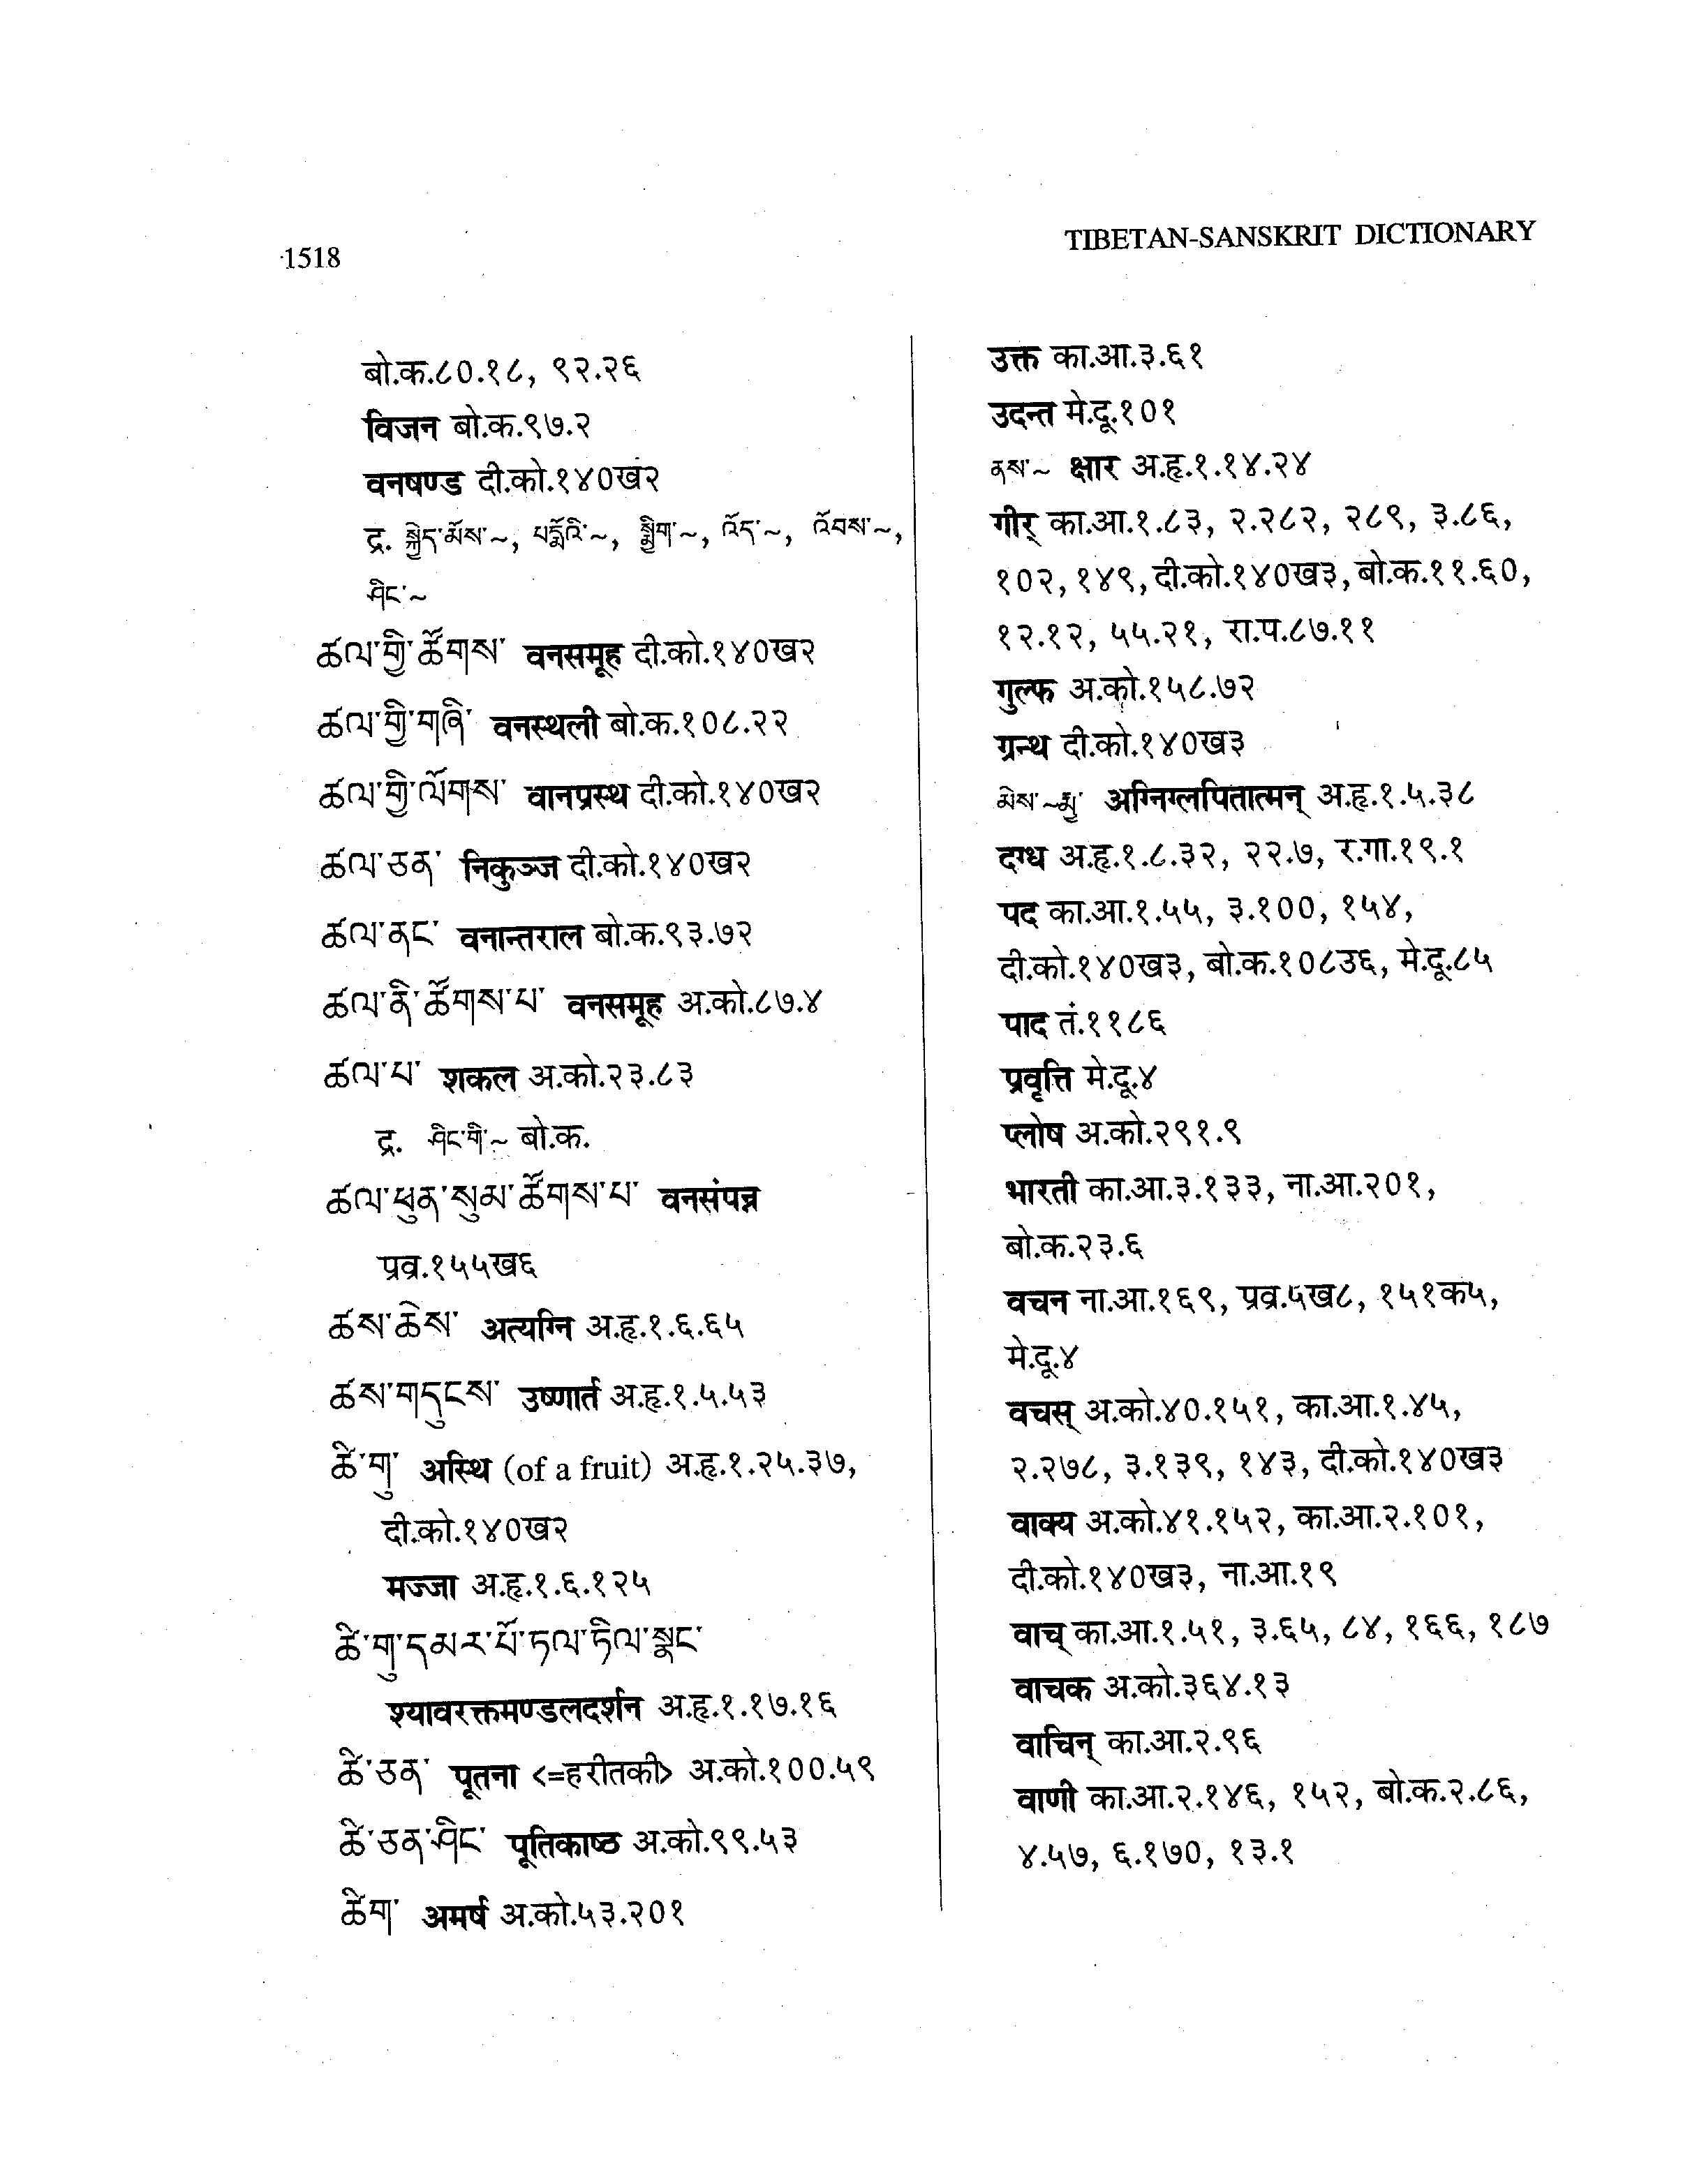 1518
TIBETAN-SANSKRIT DICTIONARY
बो.क.८०.१८, ९२.२६
विजन बो.क.९७.२
वनषण्ड दी.को.१४०ख२
द्र. སྐྱེད་མོས་~, པདྨོའི་~, སྨྱིག་~, འོད་~, འོབས་~,
ཤིང་~
ཚལ་གྱི་ཚོགས་ वनसमूह दी.को.१४०ख२
ཚལ་གྱི་གཞི་ वनस्थली बो.क.१०८.२२
ཚལ་གྱི་ལོགས་ वानप्रस्थ दी.को.१४०ख२
ཚལ་ཅན་ निकुञ्ज दी.को.१४०ख२
ཚལ་ནང་ वनान्तराल बो.क.९३.७२
ཚལ་ནི་ཚོགས་པ་ वनसमूह अ.को.८७.४
ཚལ་པ་ शकल अ.को.२३.८३
द्र. ཤིང་གི་~ बो.क.
ཚལ་ཕུན་སུམ་ཚོགས་པ་ वनसंपन्न
प्रव्र.१५५ख६
ཚས་ཆེས་ अत्यग्नि अ.हृ.१.६.६५
ཚས་གདུངས་ उष्णार्त अ.हृ.१.५.५३
ཚི་གུ་ अस्थि (of a fruit) अ.हृ.१.२५.३७,
दी.को.१४०ख२
मज्जा अ.हृ.१.६.१२५
ཚི་གུ་དམར་པོ་ཏལ་ཏིལ་སྣང་
श्यावरक्तमण्डलदर्शन अ.हृ.१.१७.१६
ཚི་ཅན་ पूतना <=हरीतकी> अ.को.१००.५९
ཚི་ཅན་ཤིང་ पूतिकाष्ठ अ.को.९९.५३
ཚིག་ अमर्ष अ.को.५३.२०१
उक्त का.आ.३.६१
उदन्त मे.दू.१०१
ནས་~ क्षार अ.हृ.१.१४.२४
गीर् का.आ.१.८३, २.२८२, २८९, ३.८६,
१०२, १४९, दी.को.१४०ख३, बो.क.११.६०,
१२.१२, ५५.२१, रा.प.८७.११
गुल्फ अ.को.१५८.७२
ग्रन्थ दी.को.१४०ख३
མེས་~མྱ་ अग्निग्लपितात्मन् अ.हृ.१.५.३८
दग्ध अ.हृ.१.८.३२, २२.७, र.गा.१९.१
पद का.आ.१.५५, ३.१००, १५४,
दी.को.१४०ख३, बो.क.१०८उ६, मे.दू.८५
पाद तं.११८६
प्रवृत्ति मे.दू.४
प्लोष अ.को.२९१.९
भारती का.आ.३.१३३, ना.आ.२०१,
बो.क.२३.६
वचन ना.आ.१६९, प्रव्र.५ख८, १५१क५,
मे.दू.४
वचस् अ.को.४०.१५१, का.आ.१.४५,
२.२७८, ३.१३९, १४३, दी.को.१४०ख३
वाक्य अ.को.४१.१५२, का.आ.२.१०१,
दी.को.१४०ख३, ना.आ.१९
वाच् का.आ.१.५१, ३.६५, ८४, १६६, १८७
वाचक अ.को.३६४.१३
वाचिन् का.आ.२.९६
वाणी का.आ.२.१४६, १५२, बो.क.२.८६,
४.५७, ६.१७०, १३.१